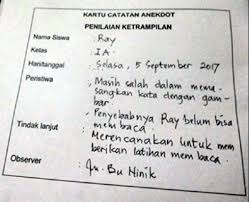 KARTU CATATAN ANEKDOT
PENILAIAN KETRAMPILAN
Nama Siswa : Ray
Kelas : IA.
Hari/tanggal : Selasa, 5 September 2017
Peristiwa : Masih salah dalam mema
sangkan kata dengan gam
bar.
Penyebabnya Ray belum bisa
membaca.
Tindak lanjut : Merencanakan untuk mem
berikan latihan membaca.
Observer : Bu Ninik